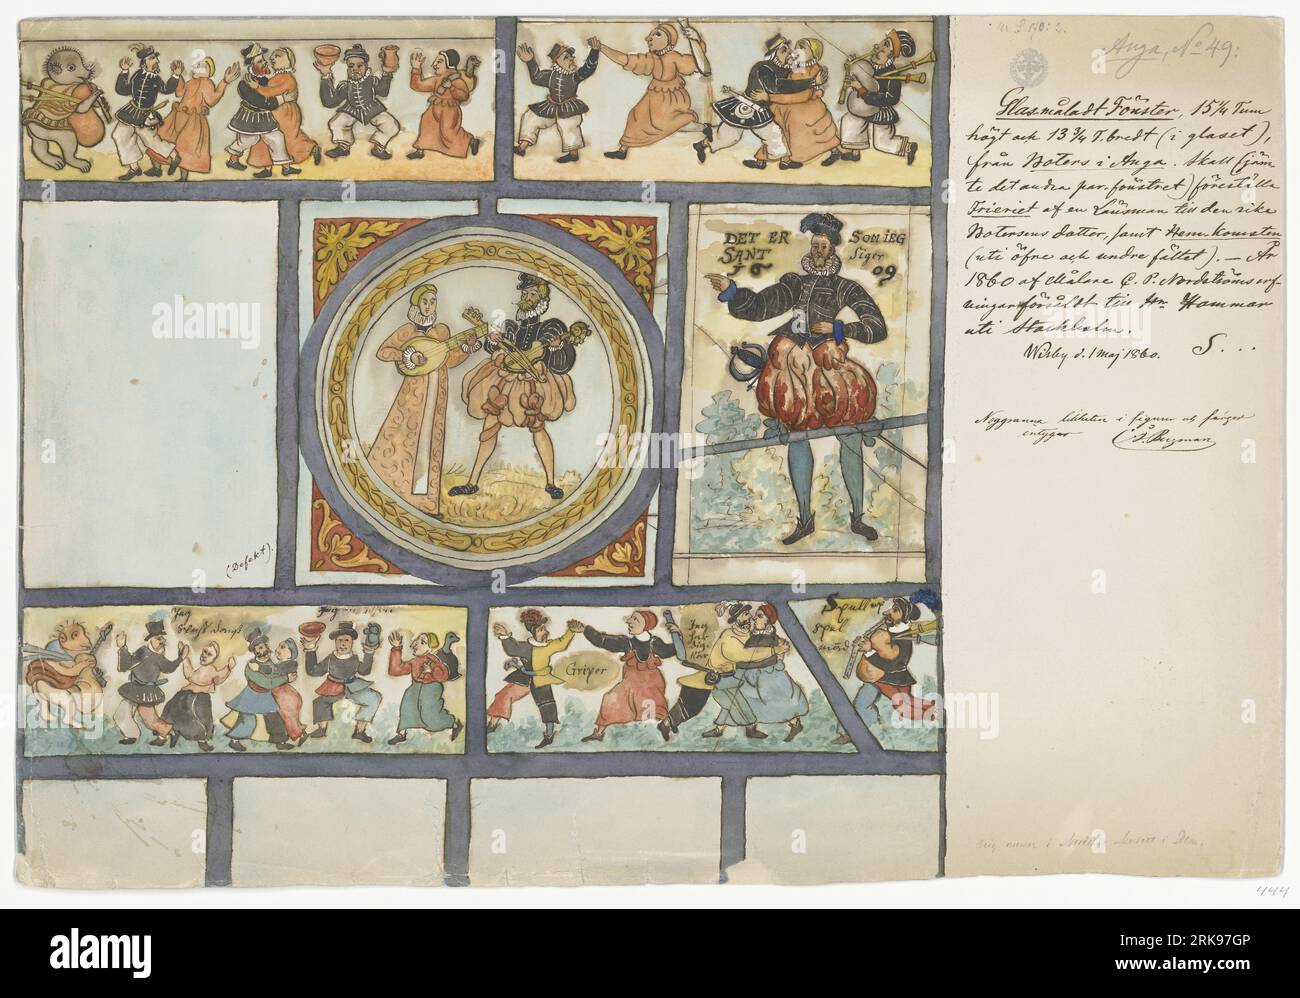 Anga, No 49:
Glasmåladt Fönster, 15¼ Tum
högt och 13¾ T. bredt (i glaset),
från Boters i Anga. Skall (jäm-
te det andra par. fönstret) föreställa
Frieriet af en Länsman till den rika
Botersens dotter, samt Hem-komsten
(uti öfre och undre fältet). — År
1860 af Målare C. P. Nordströms arf-
vingar försåldt till Hr Hammar
uti Stockholm.
Wisby d. 1 Maj 1860. S...
Noggranna likheten i figurer och färger
intygar C. J. Bergman
DET ER SOM IEG
SANT Siger
16 09
(Defekt).
Jag
Griper
Spiller
Spill
444
alamy
Image ID: 2RK97GP
www.alamy.com